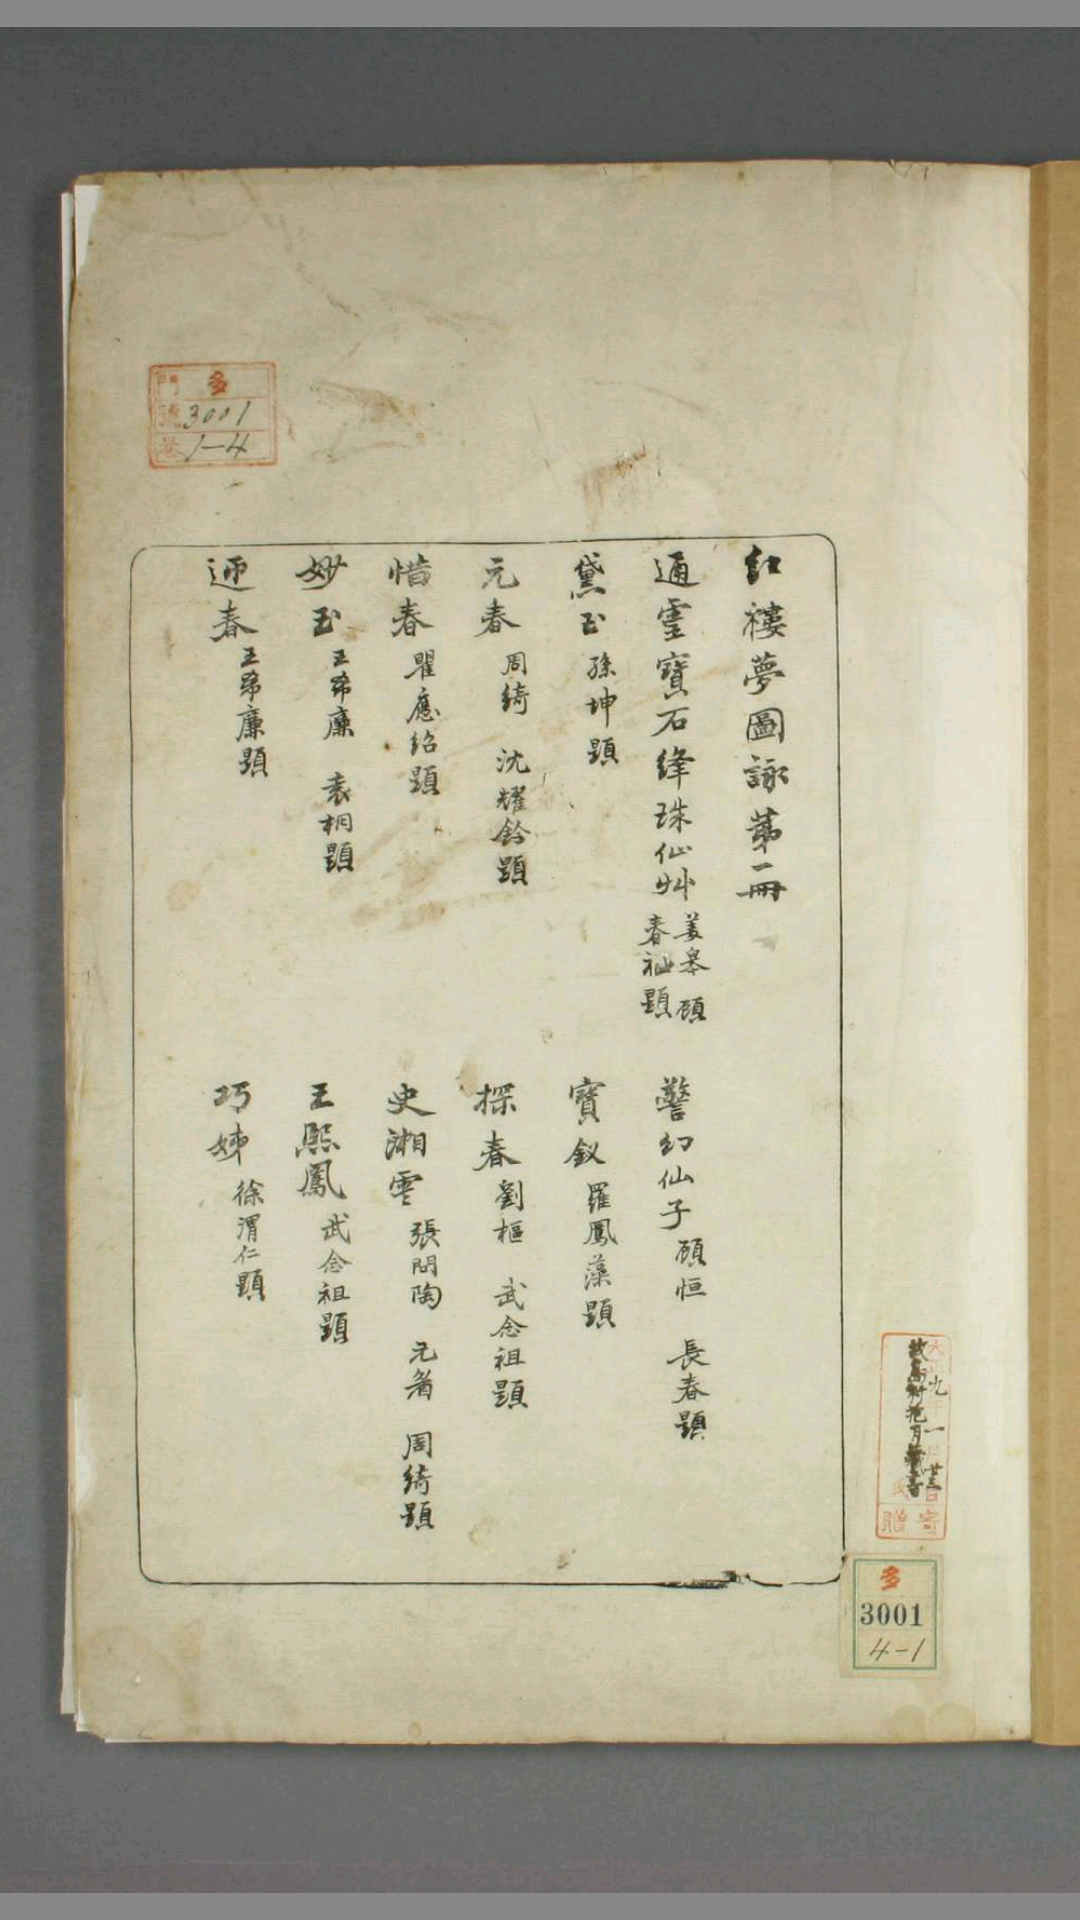 紅樓夢圖詠第一冊
通靈寶石絳珠仙艸 姜皋 顧春福題
警幻仙子 顧恒 長春題
黛玉 孫坤題
寶釵 羅鳳藻題
元春 周綺 沈耀鈐題
探春 劉樞 武念祖題
惜春 瞿應紹題
史湘雲 張問陶 周綺題
妙玉 王希廉 袁桐題
王熙鳳 武念祖題
迎春 王希廉題
巧姊 徐渭仁題
門 多
號 3001
卷 1-4
寄贈
多
3001
4-1